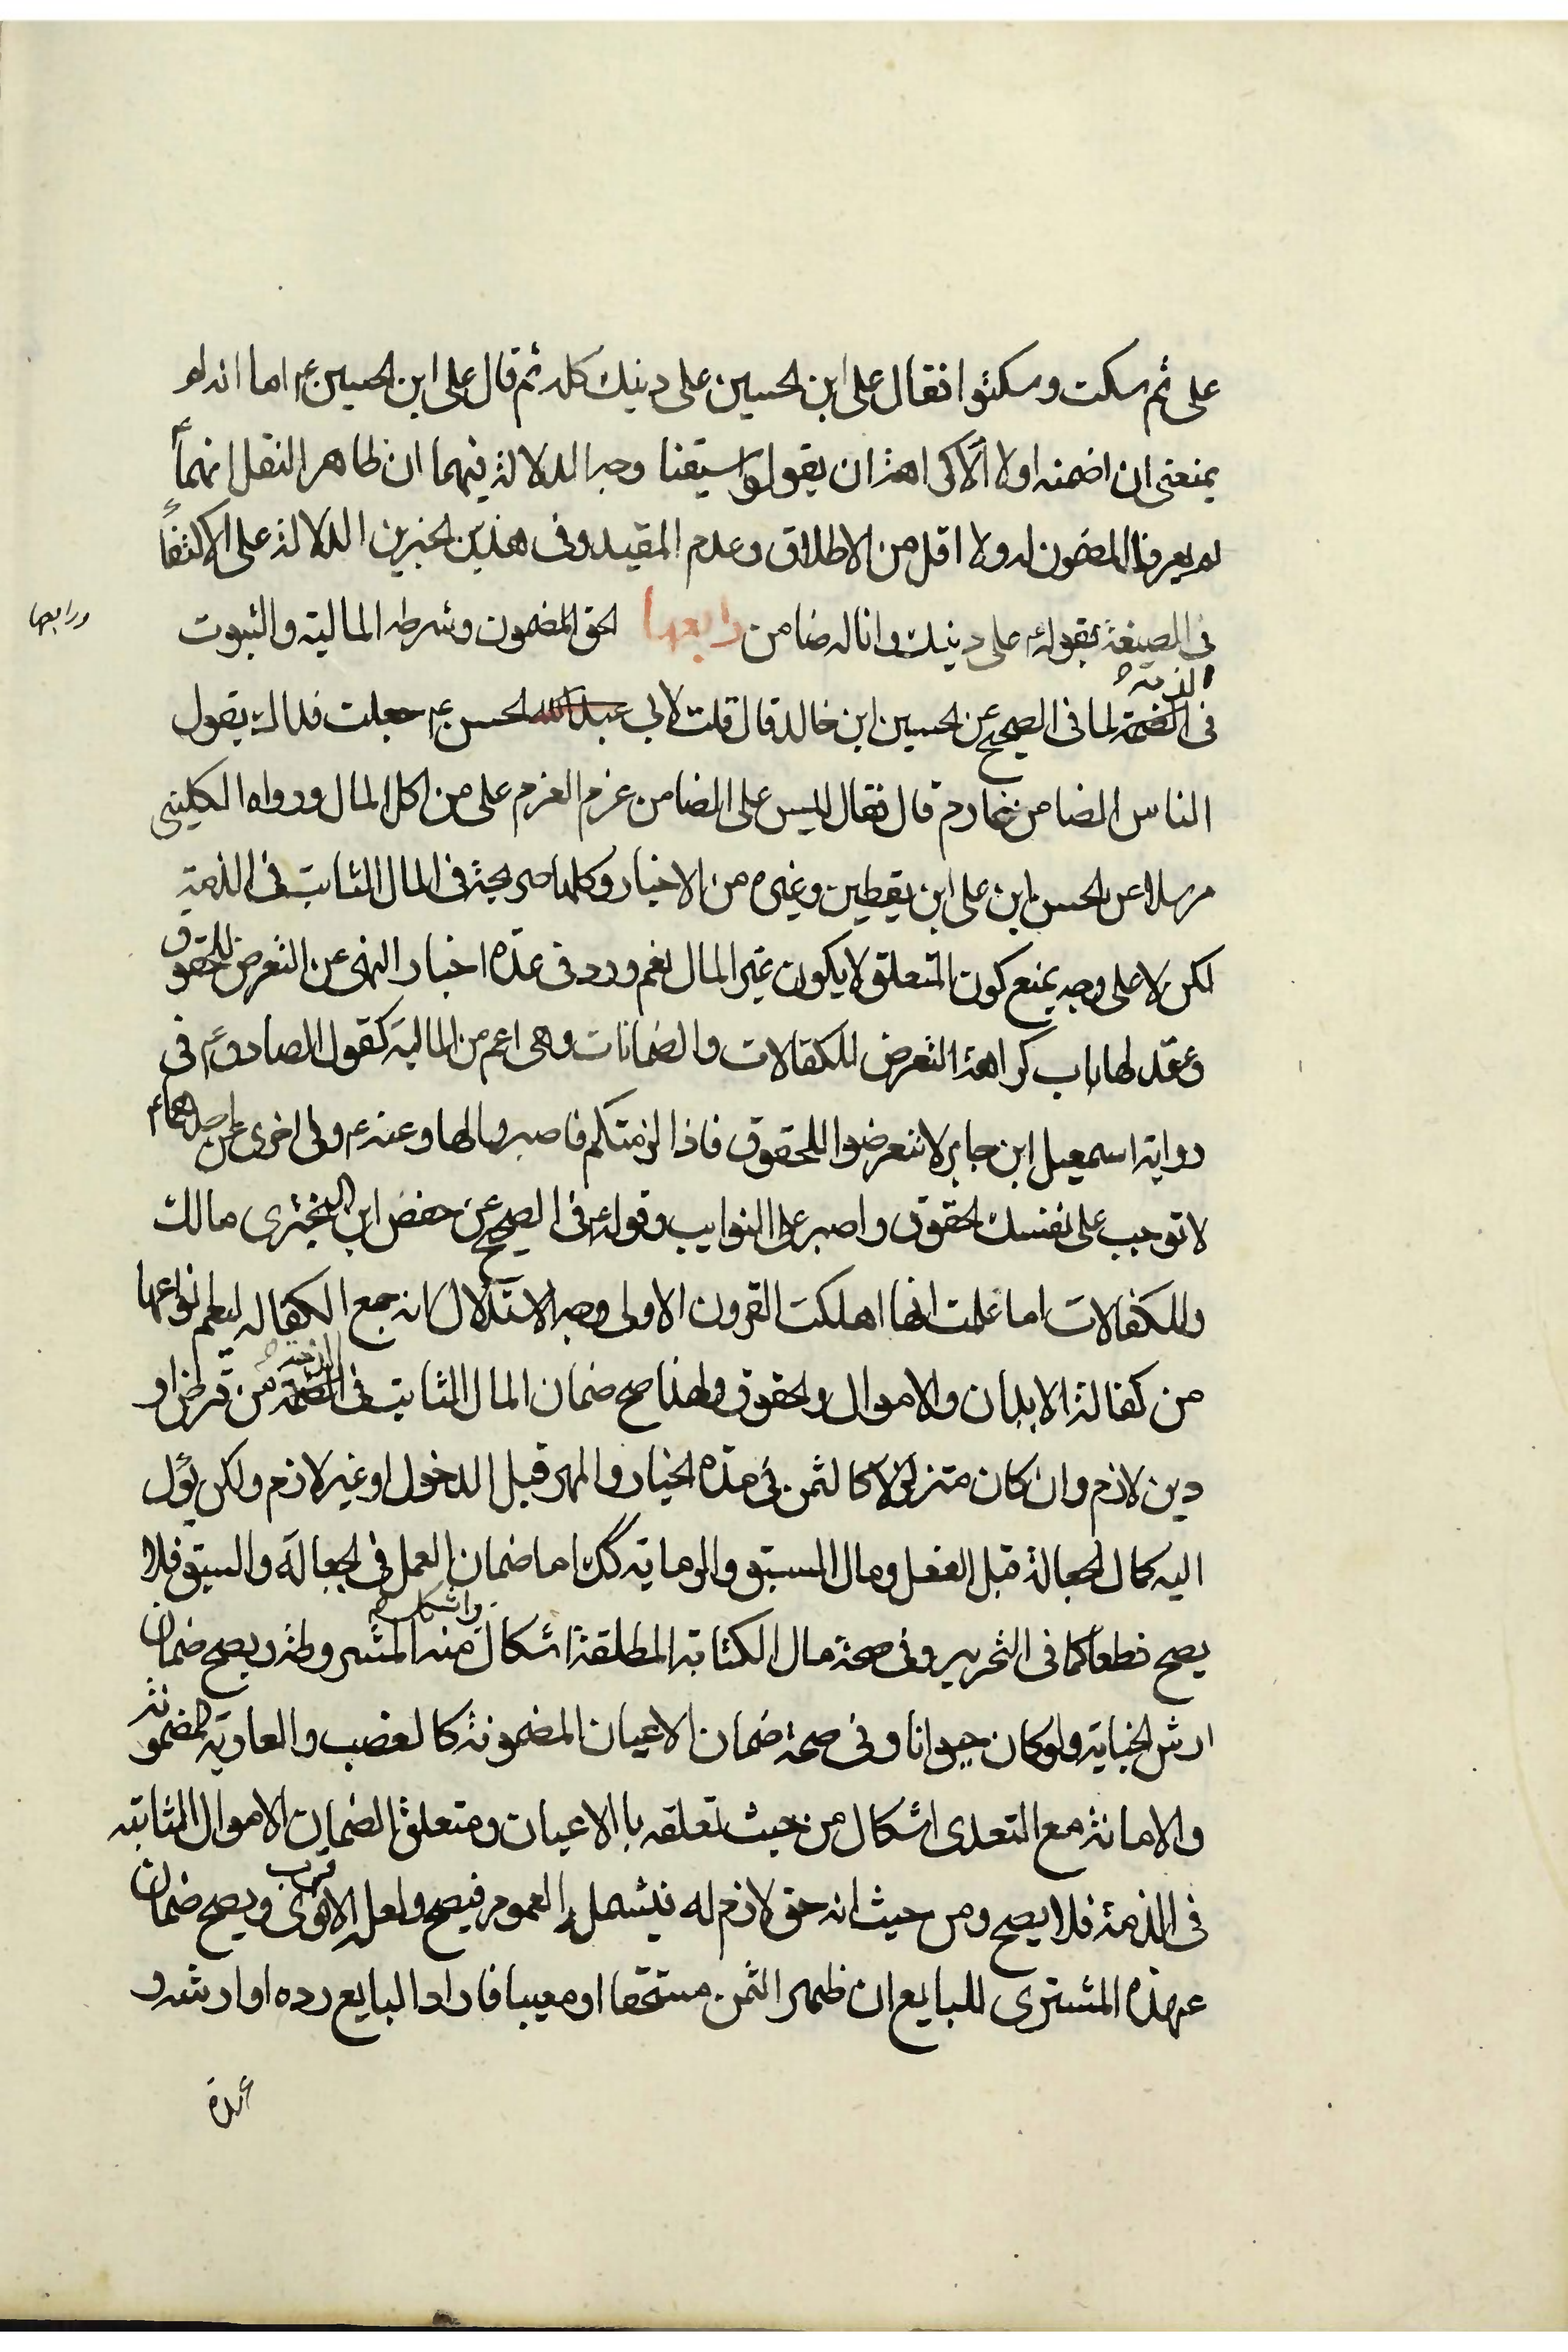 على ثم سكت وسكتوا فقال على ابن الحسين على دينك كله ثم قال على ابن الحسين ع اما انه لو
يمنعنى ان اضمنه اولا الا كراهة ان يقولوا سبقنا وجه الدلالة فيهما ان ظاهر النقل انهما
لم يعرفا المضمون له ولا اقل من الاطلاق وعدم المقيد وفى هذين الخبرين الدلالة على الاكتفاء
فى الصيغة بقوله على دينك وانا له ضامن رابعها الحق المضمون وشرطه المالية والثبوت
ورابعها
الذمة
فى الضمة لما فى الصحيح عن الحسين ابن خالد قال قلت لابى عبد الله الحسن ع جعلت فداك يقول
الناس الضامن غارم قال فقال ليس على الضامن غرم الغرم على من اكل المال ورواه الكلينى
مرسلا عن الحسن ابن على ابن يقطين وغيره من الاخبار وكلها صريحة فى المال الثابت فى الذمة
لكن لا على وجه يمنع كون المتعلق لا يكون غير المال نعم ورد فى عدة اخبار النهى عن التعرض للحقوق
وعقد لها باب كراهة التعرض للكفالات والضمانات وهى اعم من المالية كقول الصادق ع فى
رواية اسمعيل ابن جابر لا تتعرضوا للحقوق فاذا لزمتكم فاصبروا لها وعنه ع وفى اخرى عن احدهما ع
لا توجب على نفسك الحقوق واصبر على النوايب وقوله ع فى الصحيح عن حفص ابن البخترى مالك
وللكفالات اما علمت انها اهلكت القرون الاولى وجه الاستدلال انه جمع الكفالة ليعلم انواعها
من كفالة الابدان والاموال والحقوق ولهذا صح ضمان المال الثابت فى الذمة من قرض او
دين لازم وان كان متزلزلا كالثمن فى مدة الخيار والمهر قبل الدخول او غير لازم ولكن يؤل
اليه كمال الجعالة قبل الفعل ومال السبق والرماية كك اما ضمان العمل فى الجعالة والسبق فلا
يصح قطعا كما فى التحرير وفى صحة مال الكتابة المطلقة اشكال واشكل منه المشروطة ويصح ضمان
ارش الجناية ولو كان حيوانا وفى صحة ضمان الاعيان المضمونة كالغصب والعارية المضمونة
والامانة مع التعدى اشكال من حيث تعلقه با الاعيان ومتعلق الضمان الاموال الثابتة
فى الذمة فلا يصح ومن حيث انه حق لازم له فيشمله العموم فيصح ولعل الاقوى قرب ويصح ضمان
عهدة المشترى للبايع ان ظهر الثمن مستحقا او معيبا فاراد البايع رده او ارشه و
عهدة